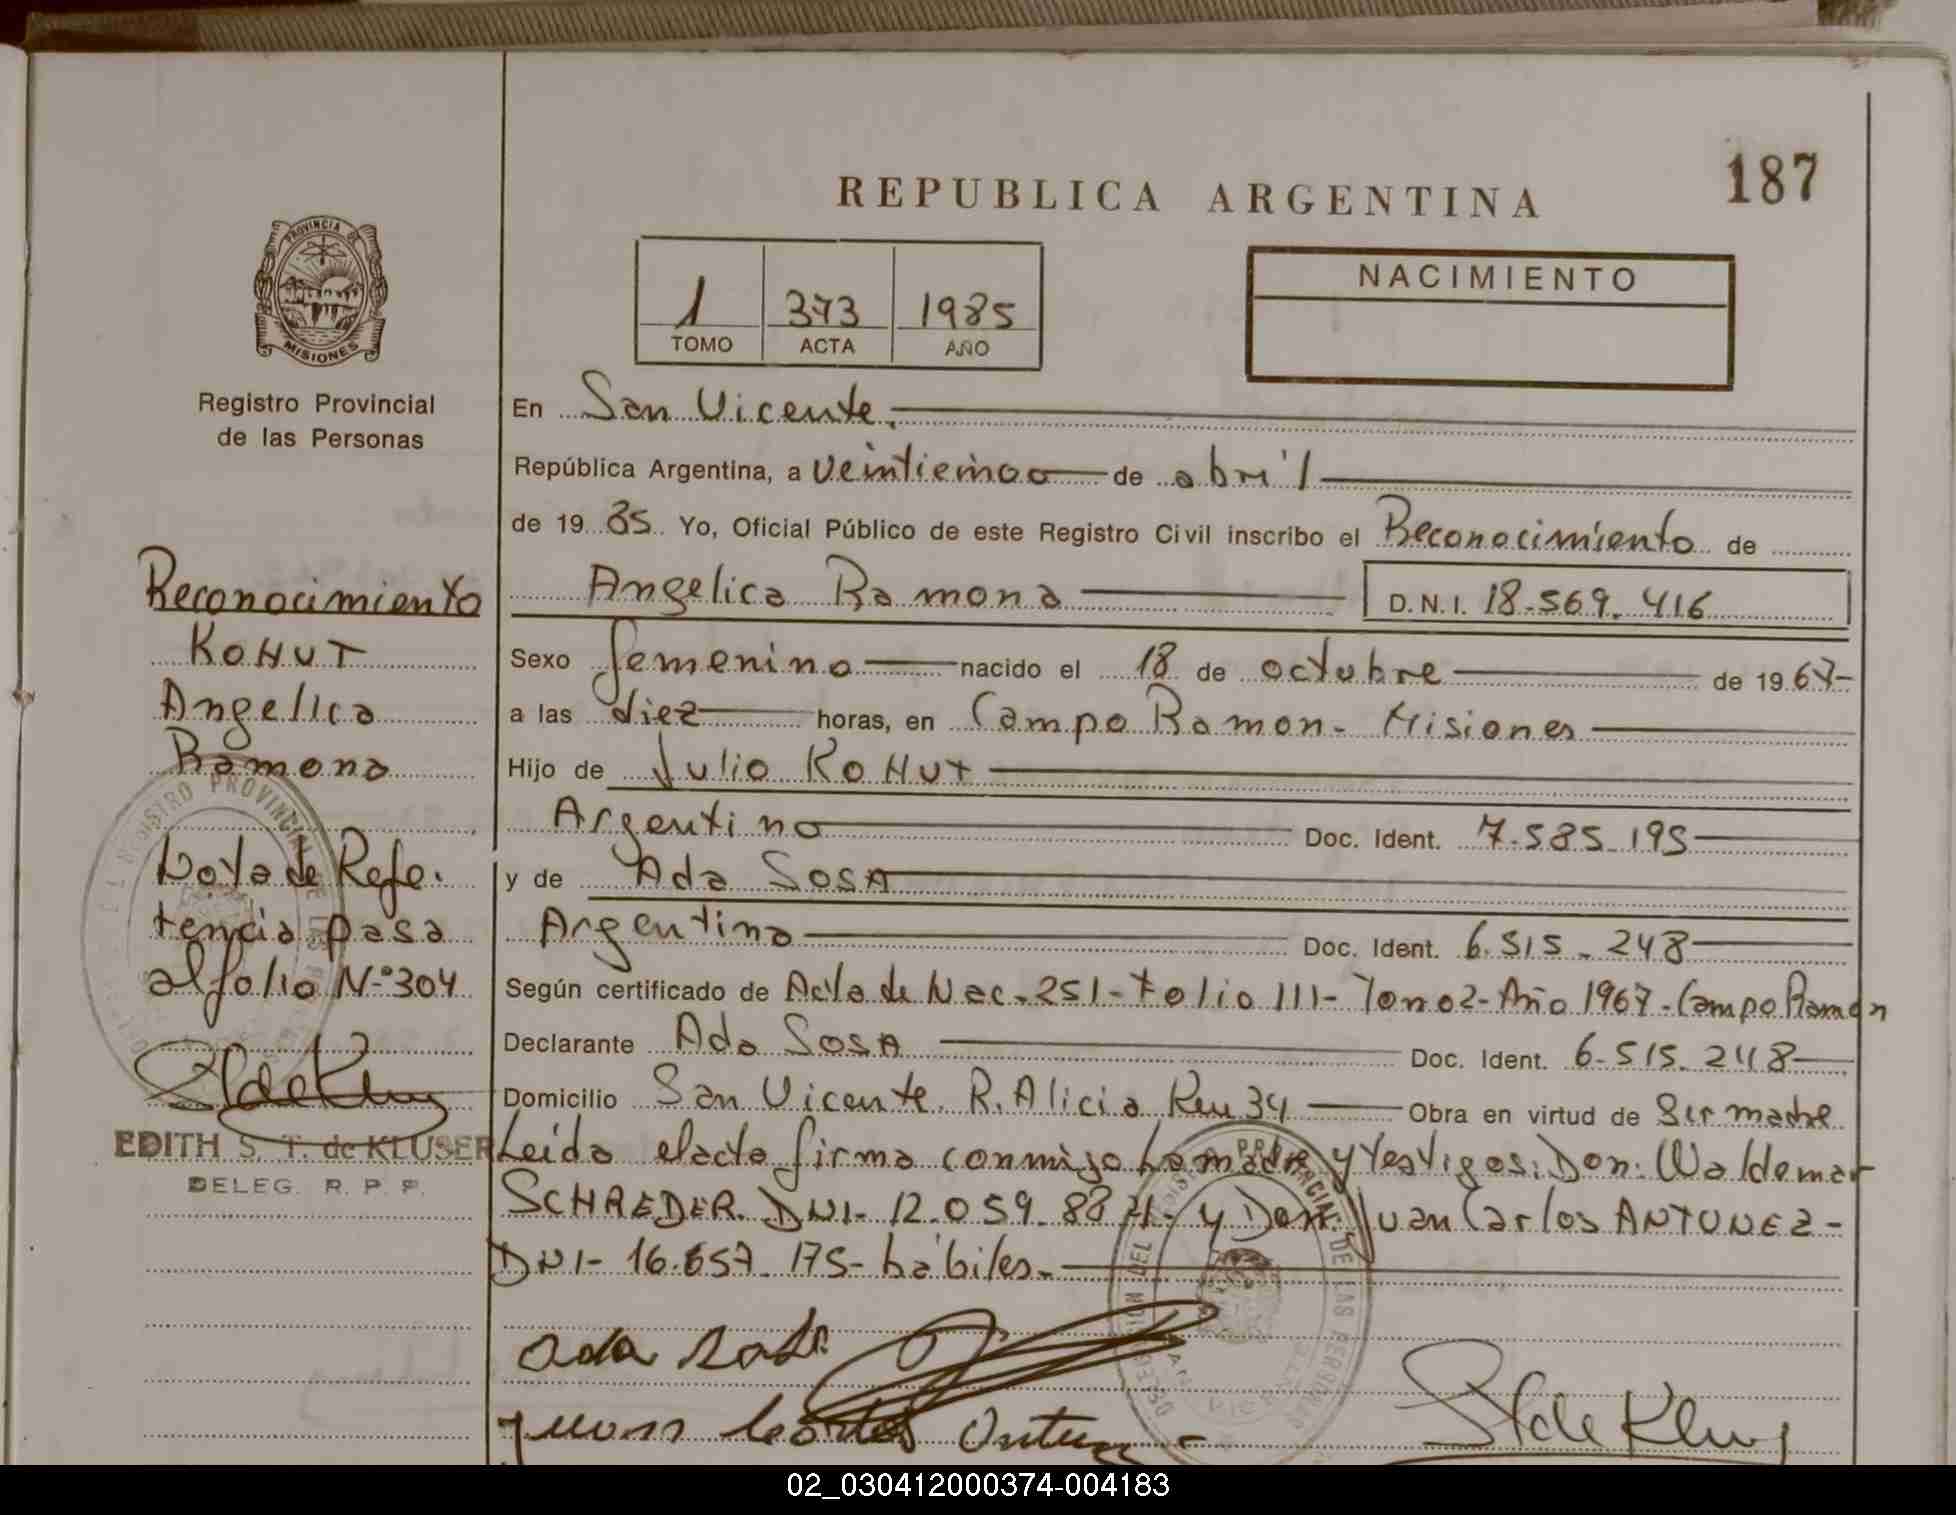 187
REPUBLICA ARGENTINA
PROVINCIA DE
MISIONES
Registro Provincial
de las Personas
1 373 1985
TOMO ACTA AÑO
NACIMIENTO
En San Vicente.
República Argentina, a veinticinco de abril
de 19 85 Yo, Oficial Público de este Registro Civil inscribo el Reconocimiento de
Angelica Ramona D.N.I. 18.569.416
Sexo femenino nacido el 18 de octubre de 19 67-
a las diez horas, en Campo Ramon- Misiones
Hijo de Julio KOHUT
Argentino Doc. Ident. 7.585.195
y de Ada SOSA
Argentina Doc. Ident. 6.515.248
Según certificado de Acta de Nac.-251-Folio 111-Tomo 2-Año 1967-Campo Ramon
Declarante Ada SOSA Doc. Ident. 6.515.248
Domicilio San Vicente R. Alicia Km 34 Obra en virtud de Ser madre
Leida el acta firma conmigo la madre y testigos: Don: Waldemar
SCHREDER. DNI- 12.059.88 - y Don Juan Carlos ANTUNEZ-
DNI- 16.657.175- hábiles.-
Ada Sosa
Juan Carlos Antunez
Reconocimiento
KOHUT
Angelica
Ramona
Nota de Refe-
rencia pasa
al folio Nº 304
EDITH S. T. de KLUSER
DELEG. R. P. P.
02_030412000374-004183